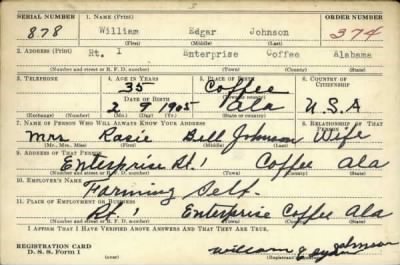 SERIAL NUMBER 1. NAME (Print) ORDER NUMBER
878 William Edgar Johnson 374
(First) (Middle) (Last)
2. ADDRESS (Print)
Rt. 1 Enterprise Coffee Alabama
(Number and street or R. F. D. number) (Town) (County) (State)
3. TELEPHONE 4. AGE IN YEARS 5. PLACE OF BIRTH 6. COUNTRY OF CITIZENSHIP
35 Coffee
DATE OF BIRTH (Town or county)
2 9 1905 Ala U.S.A
(Exchange) (Number) (Mo.) (Day) (Yr.) (State or country)
7. NAME OF PERSON WHO WILL ALWAYS KNOW YOUR ADDRESS 8. RELATIONSHIP OF THAT PERSON
Mrs Rosie Bell Johnson Wife
(Mr., Mrs., Miss) (First) (Middle) (Last)
9. ADDRESS OF THAT PERSON
Enterprise Rt. 1 Coffee Ala
(Number and street or R. F. D. number) (Town) (County) (State)
10. EMPLOYER'S NAME
Farming Self.
11. PLACE OF EMPLOYMENT OR BUSINESS
Rt. 1 Enterprise Coffee Ala
(Number and street or R. F. D. number) (Town) (County) (State)
I AFFIRM THAT I HAVE VERIFIED ABOVE ANSWERS AND THAT THEY ARE TRUE.
REGISTRATION CARD
D. S. S. Form 1 William Edgar Johnson